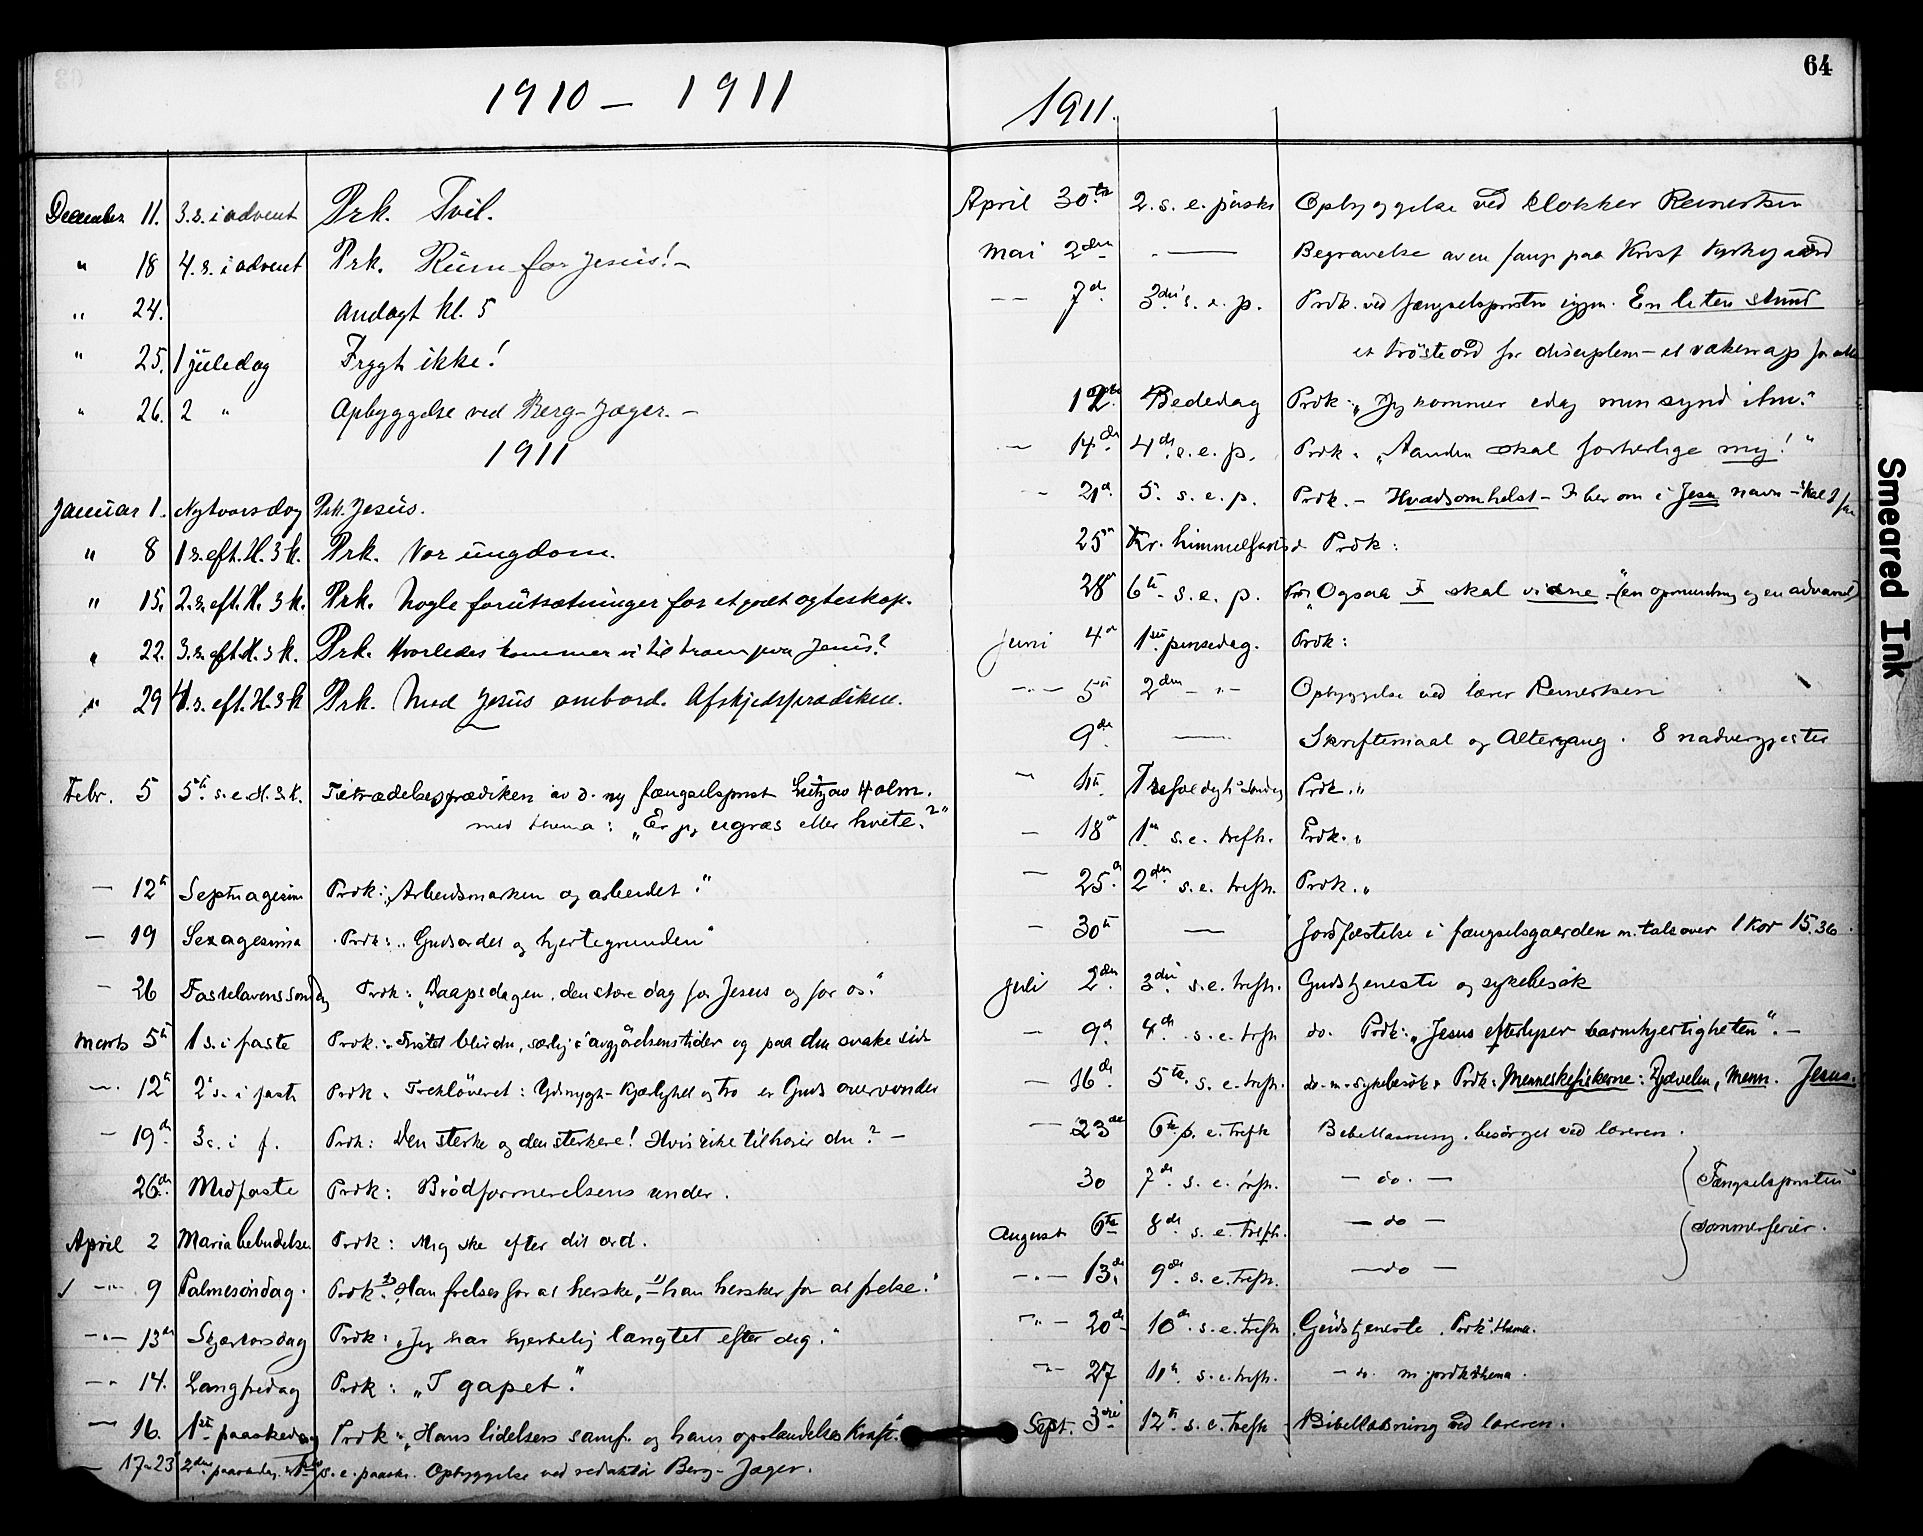 1910 — 1911
December 11. 3. s. i advent Prk. Tvil.
" 18 4. s. i advent Prk. Rum for Jesus! —
" 24. Andagt kl. 5
" 25. 1 juledag Frygt ikke!
" 26. 2 " Opbyggelse ved Berg-Jæger. —
1911
Januar 1. Nytaarsdag Prk. Jesus.
" 8 1 s. eft. H. 3 k. Prk. Vor ungdom.
" 15. 2. s. eft. H. 3 k. Prk. Nogle forutsætninger for et godt egteskap.
" 22. 3. s. eft. H. 3 k. Prk. Hvorledes kommer vi til troen paa Jesus?
" 29 4. s. eft. H. 3 k Prk. Med Jesus ombord. Afskjedsprædiken.
Febr. 5 5te s. e. H. 3. k. Tiltrædelsesprædiken av d. ny fængselsprest Lützow Holm.
med thema: „Er jeg ugræs eller hvete?"
— 12te Septuagesim Prdk: „Arbeidsmarken og arbeidet."
— 19 Sexagesima Prdk: „Gudsordet og hjertegrunden"
— 26 Fastelavenssøndag Prdk: „Daapsdagen, den store dag for Jesus og for os."
Marts 5te 1 s. i faste Prdk: Fristet blir du, særlig i avgjørelsenstider og paa din svake side
— 12te 2. s. i faste Prdk. Trekløveret: Ydmyght- Kjærlighet og tro er Guds overvinder
— 19de 3 s. i f. Prdk: Den sterke og den sterkere! Hvis rike tilhører du? —
26de Midfaste Prdk: Brødformerelsens under.
April 2 Maria bebudelse Prdk: Mig ske efter dit ord.
— " — 9 Palmesøndag. Prdk: „Han frelses for at herske, — han hersker for at frelse."
— " — 13de Skjærtorsdag Prdk: „Jeg har hjertelig længtet efter dig."
— " 14. Langfredag Prdk: „I gapet."
— 16. 1ste paaskedag Prdk: „Hans lidelses samf. og hans opstandelses kraft."
— 17-23 2den paaskedag s. e. paaske. Opbyggelse ved redaktør Berg-Jæger.
64
1911.
April 30te 2. s. e. påske Opbyggelse ved klokker Reinertsen
Mai 2den — Begravelse av en fange paa Krist Kirkegaard
— — 7de 3die s. e. p. Prdk. ved fængselspresten igjen. En liten stund
et trösteord for disciplene — et vækerrop for alle
12te Bededag Prdk: „Jeg kommer idag min synd ihu."
— 14de 4de s. e. p. Prdk. „Aanden skal forherlige mig!"
— 21de 5. s. e. p. Prdk. — Hvadsomhelst — I ber om i Jesu navn — skal I faa
25de Kr. himmelfartsd Prdk:
28de 6te s. e. p. Prdk „Ogsaa I skal vidne" — (en opmuntring og en advarsel)
Juni 4de 1ste pinsedag. Prdk:
— " — 5te 2den — " — Opbyggelse ved lærer Reinertsen
9de — Skriftemaal og Altergang. 8 nadvergjester
— 11te Trefoldigh. søndag Prdk. "
— 18de 1ste s. e. trefh. Prdk. "
— 25de 2den s. e. trefh. Prdk. "
— 30te — Jordfæstelse i fængselsgaarden m. tale over 1 Kor 15.36.
Juli 2den 3die s. e. trefh. Gudstjeneste og sykebesøk
— 9de 4de s. e. trefh do. Prdk: „Jesus efterlyser barmhjertigheten". —
— 16de 5te s. e. trefh. do. m. sykebesøk. Prdk: Menneskefiskerne: Djævelen, Menn. Jesus.
— 23de 6te s. e. trefh Bibellæsning, besørget ved læreren.
30 7de s. e. trefh. — do. — Fængselsprestens
August 6te 8de s. e. trefh. — do — sommerferier.
— " — 13de 9de s. e. trefh. — do —
— " — 20de 10de s. e. trefh Gudstjeneste. Prdk. thema.
— " — 27 11te s. e. trefh. — do. m prdk thema.
Sept. 3die 12te s. e. trefh Bibellæsning ved læreren.
Smeared Ink